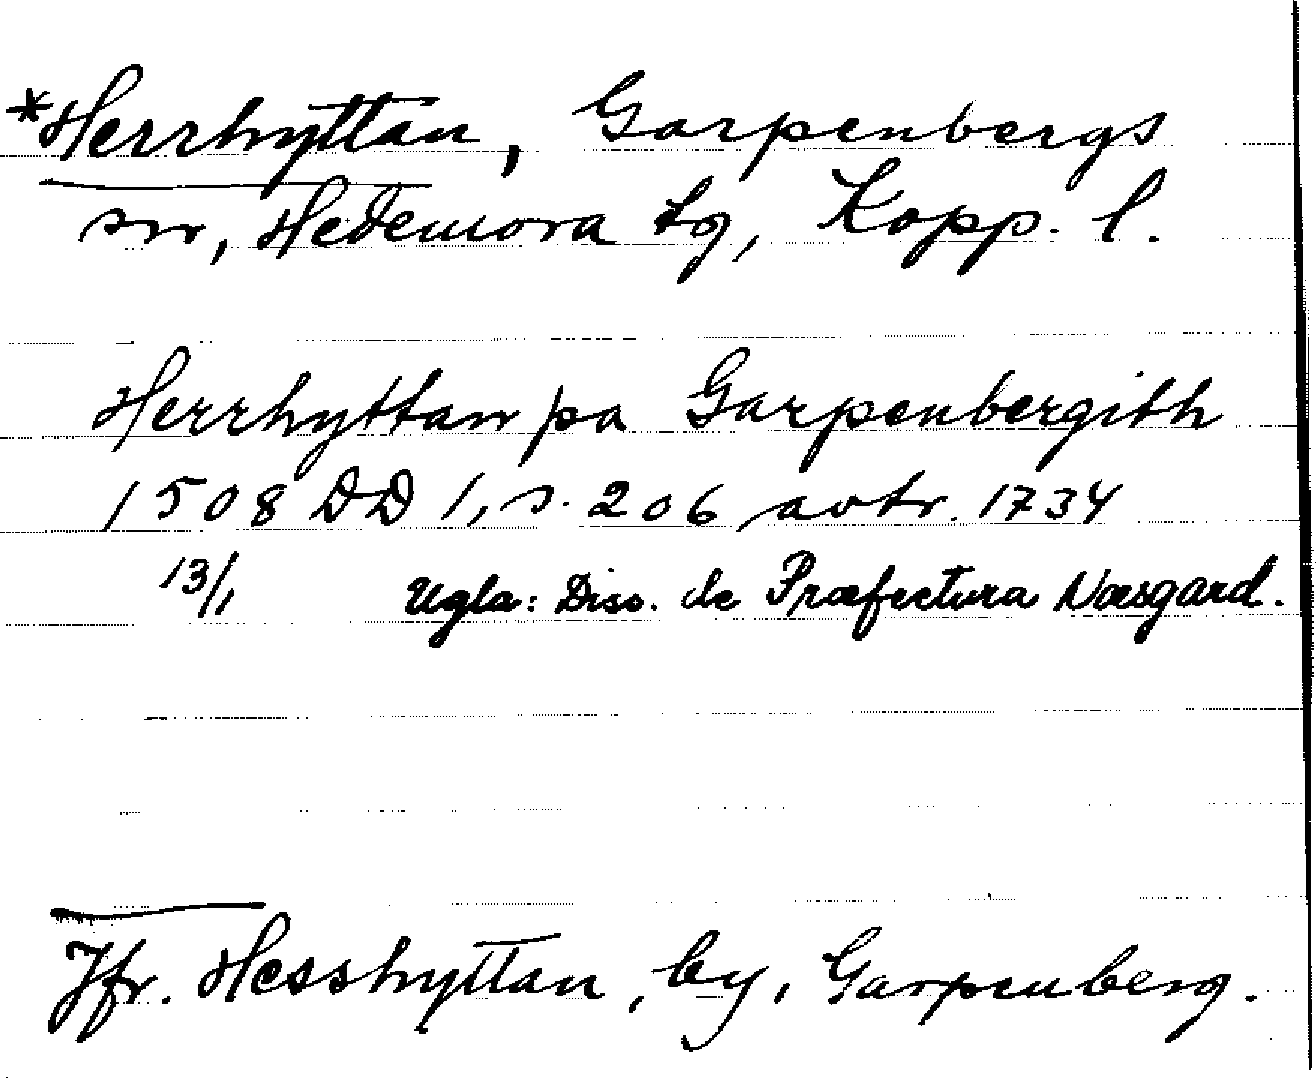 *Herrhyttan, Garpenbergs
sn, Hedemora tg, Kopp. l.
Herrhyttan pa Garpenbergith
1508 DD 1, s. 206 avtr. 1734
13/1 Ugla: Diss. de Præfectura Næsgard.
Jfr. Hesshyttan, by, Garpenberg.